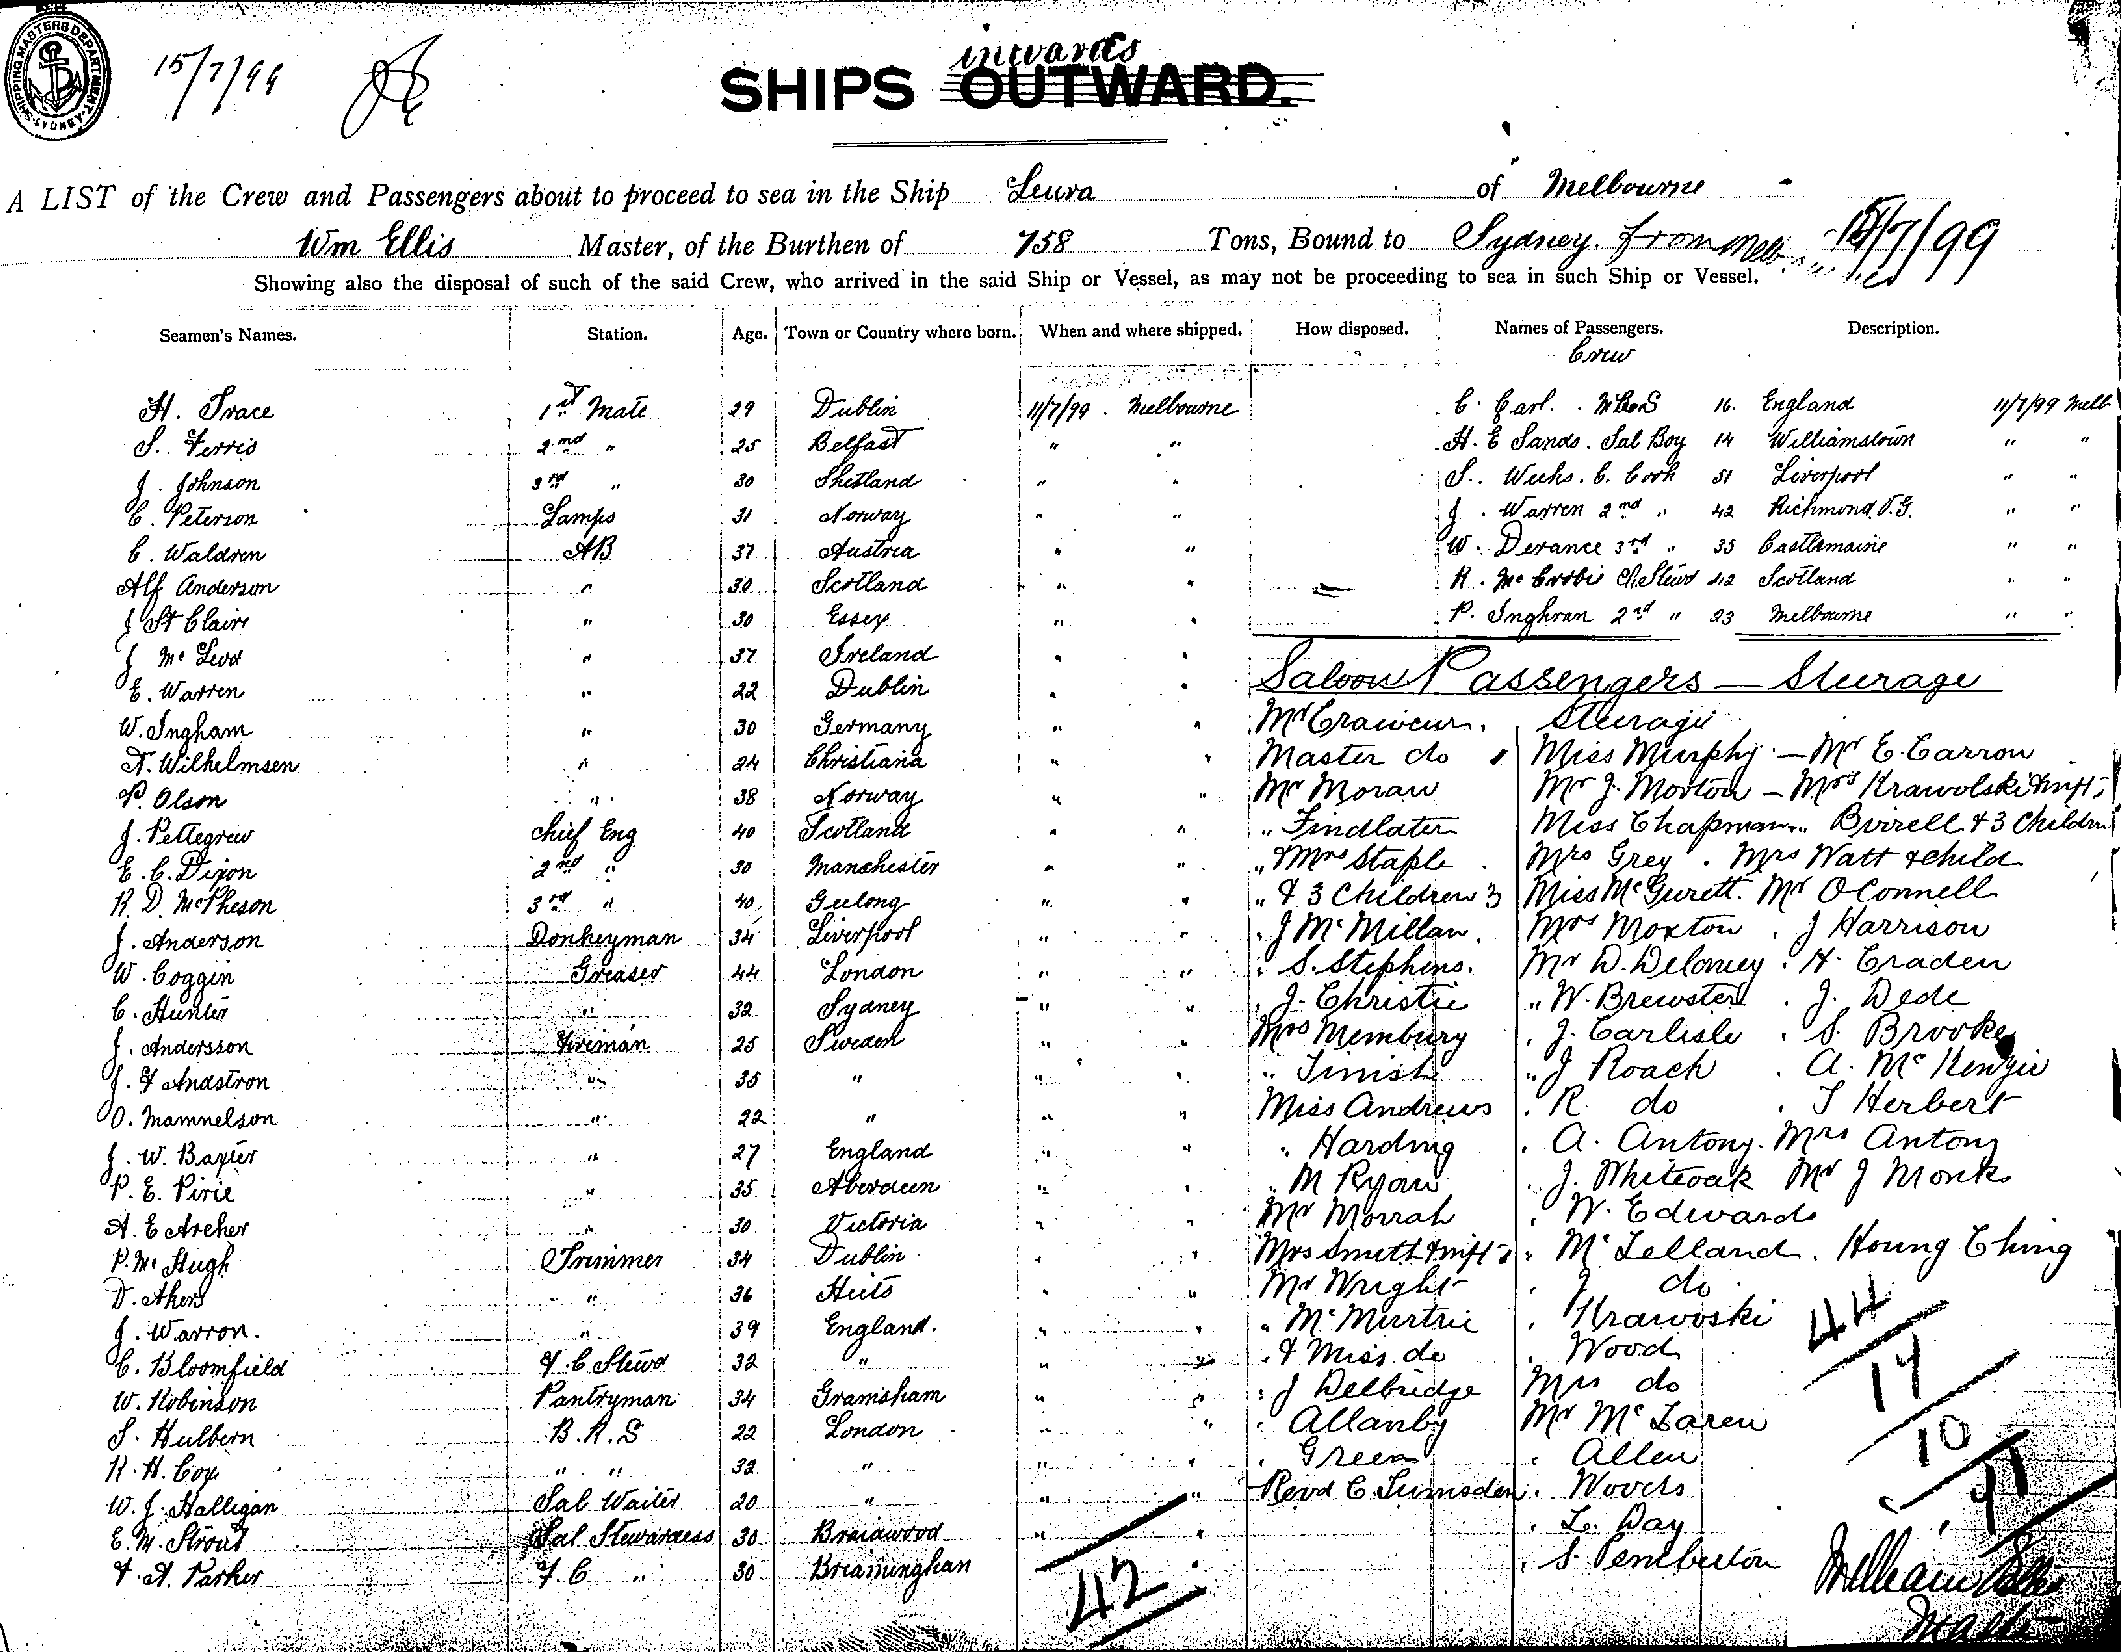 SHIPPING MASTERS DEPARTMENT SYDNEY
15/7/99
inwards
SHIPS OUTWARD.
A LIST of the Crew and Passengers about to proceed to sea in the Ship Leura of Melbourne
Wm Ellis Master, of the Burthen of 758 Tons, Bound to Sydney. from Melb. 15/7/99
Showing also the disposal of such of the said Crew, who arrived in the said Ship or Vessel, as may not be proceeding to sea in such Ship or Vessel.
Seamen's Names. Station. Age. Town or Country where born. When and where shipped. How disposed. Names of Passengers. Description.
Crew
H. Trace 1st Mate 29 Dublin 11/7/99 Melbourne
S. Ferris 2nd " 25 Belfast " "
J. Johnson 3rd " 30 Shetland " "
C. Peterson Lamps 31 Norway " "
C. Waldren AB 37 Austria " "
Alf Anderson " 30 Scotland " "
J St Clair " 30 Essex " "
J McLeod " 37 Ireland " "
E. Warren " 22 Dublin " "
W. Ingham " 30 Germany " "
A. Wilhelmsen " 24 Christiana " "
P. Olson " 38 Norway " "
J. Pettegrew Chief Eng 40 Scotland " "
E. C. Dixon 2nd " 30 Manchester " "
R. D. McPheson 3rd " 40 Geelong " "
J. Anderson Donkeyman 34 Liverpool " "
W. Coggin Greaser 44 London " "
C. Hunter " 32 Sydney " "
J. Andersson Fireman 25 Sweden " "
J. F Andstron " 35 " " "
O. Mamnelson " 22 " " "
J. W. Baxter " 27 England " "
P. E. Pirie " 35 Aberdeen " "
A. E Archer " 30 Victoria " "
P. Mc Hugh Trimmer 34 Dublin " "
D. Akers " 36 " "
J. Warron. " 39 England. " "
C. Bloomfield F. C Stewd 32 " " "
W. Robinson Pantryman 34 Gramsham " "
S. Hulbern B. R. S 22 London " "
R. H. Cox " " 32 " " "
W. J. Halligan Sal Waiter 20 " " "
E. M. Strout Sal Stewardess 30 Braidwood " "
F. A. Parker F C " 30 Breaminghan "
42
C. Carl. 16. England 11/7/99 Melb
H. E Sands. Sal Boy 14 Williamstown " "
S. Weeks. C. Cook 51 Liverpool " "
J. Warren 2nd " 42 Richmond V.G. " "
W. Derance 3rd " 35 Castlemaine " "
R. McCrobie Ch Stewd 42 Scotland " "
P. Inghran 2nd " 23 Melbourne " "
Saloon Passengers — Steerage
Mr Craiveur. Steerage
Master do Miss Murphy — Mr E. Carron
Mr Moran Mr J. Morton — Mrs Krawolski & inft
" Findlater Miss Chapman " Birrell & 3 Children
" & Mrs Staple Mrs Grey. Mrs Watt & child
" & 3 Children 3 Miss McGurett. Mr OConnell
. J McMillan. Mrs Moxton . J Harrison
. S. Stephens. Mr D. Deloney . H. Craden
. J. Christie " W. Brewster . J. Dede
Mrs Membury . J. Carlisle . S. Brooke
" Tinish " J Roach . A. McKenzie
Miss Andrews . R. do . T Herbert
. Harding . A. Antony. Mrs Antony
. M Ryan . J. Whiteoak Mr J Monks
Mr Morrah . W. Edwards
Mrs Smith & inft . McLelland. Houng Ching
Mr Wright . J do
. McMurtrie . Krawoski
. & Miss do . Wood
. J Delbridge Mrs do
. Allanby Mr McLaren
. Green . Allen
Revd C Lumsden . Woods
. L. Day
. S. Pemberton
44
17
10
William Ellis
Master